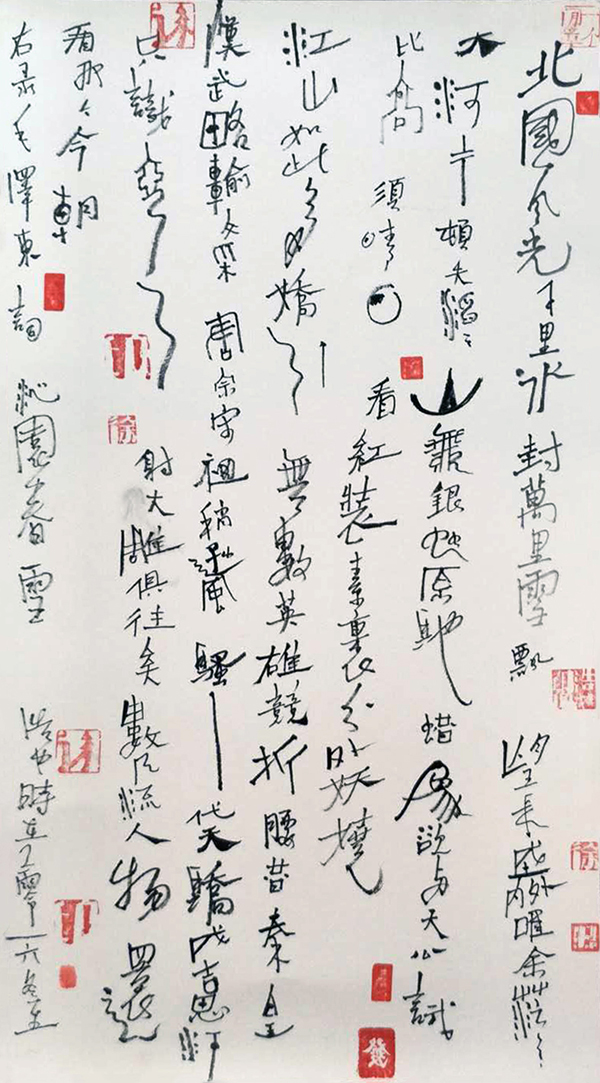 北國风光千里冰封萬里雪飄望長城内外唯余莽〻
大河上下頓失滔〻山舞銀蛇原馳蜡象欲与天公試
比高須晴日看紅裝素裹分外妖嬈
江山如此多嬌引無數英雄競折腰昔秦皇
漢武略輸文采唐宗宋祖稍遜風騷一代天驕成吉思汗
只識彎弓射大雕俱往矣數风流人物還
看今朝
右录毛澤東詞沁園春雪時在二零一六冬至
徐